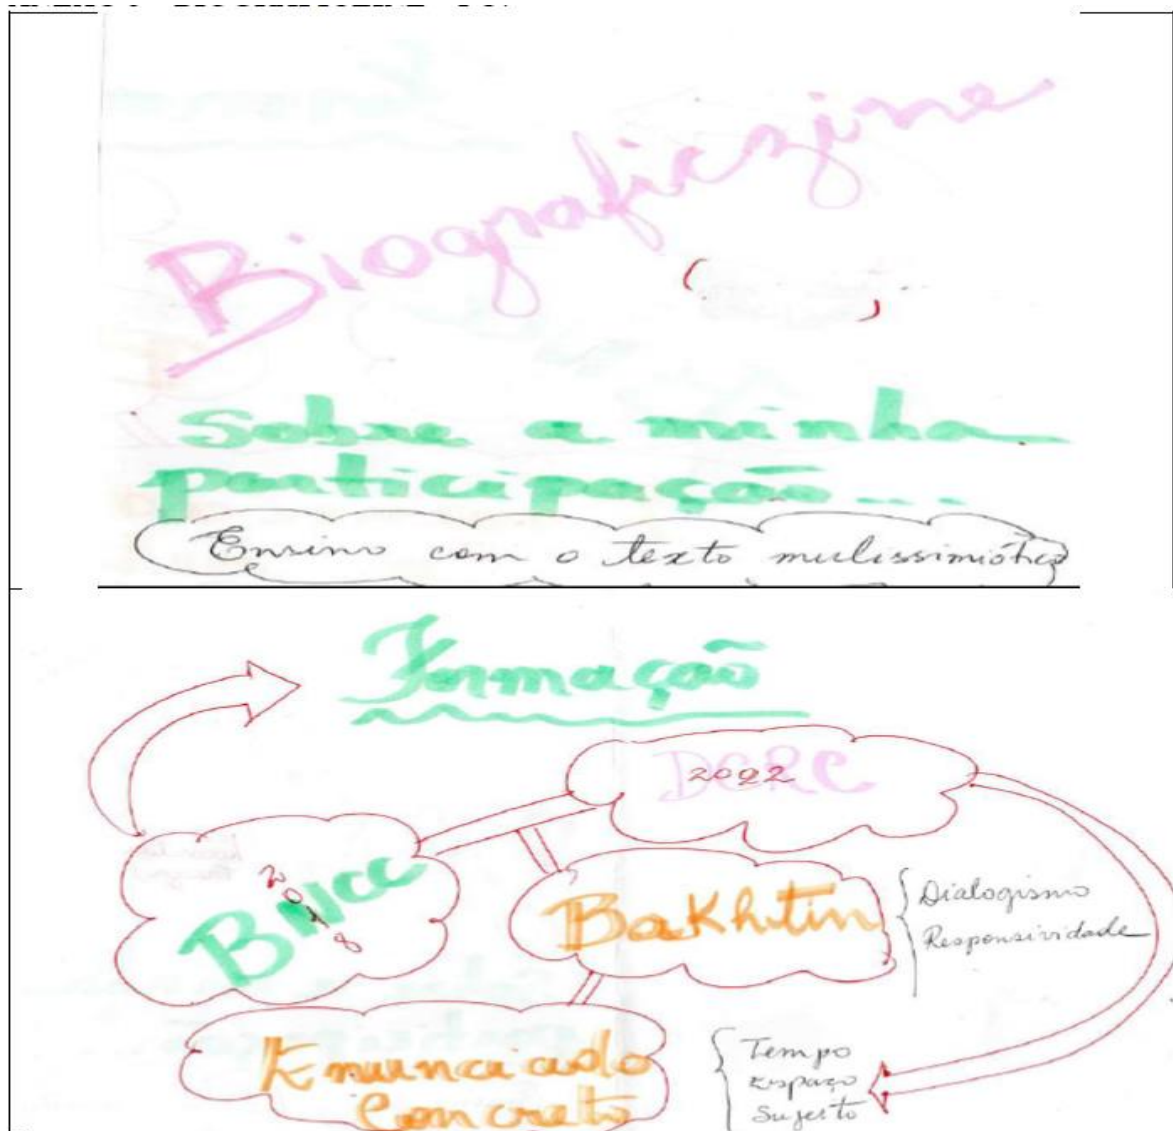 Biograficzine
( )
Sobre a minha
participação...
Ensino com o texto mulissimiótico
Formação
DCRC
2022
BNCC
2018
Bakhtin
Dialogismo
Responsividade
Enunciado
Concreto
Tempo
Espaço
Sujeito